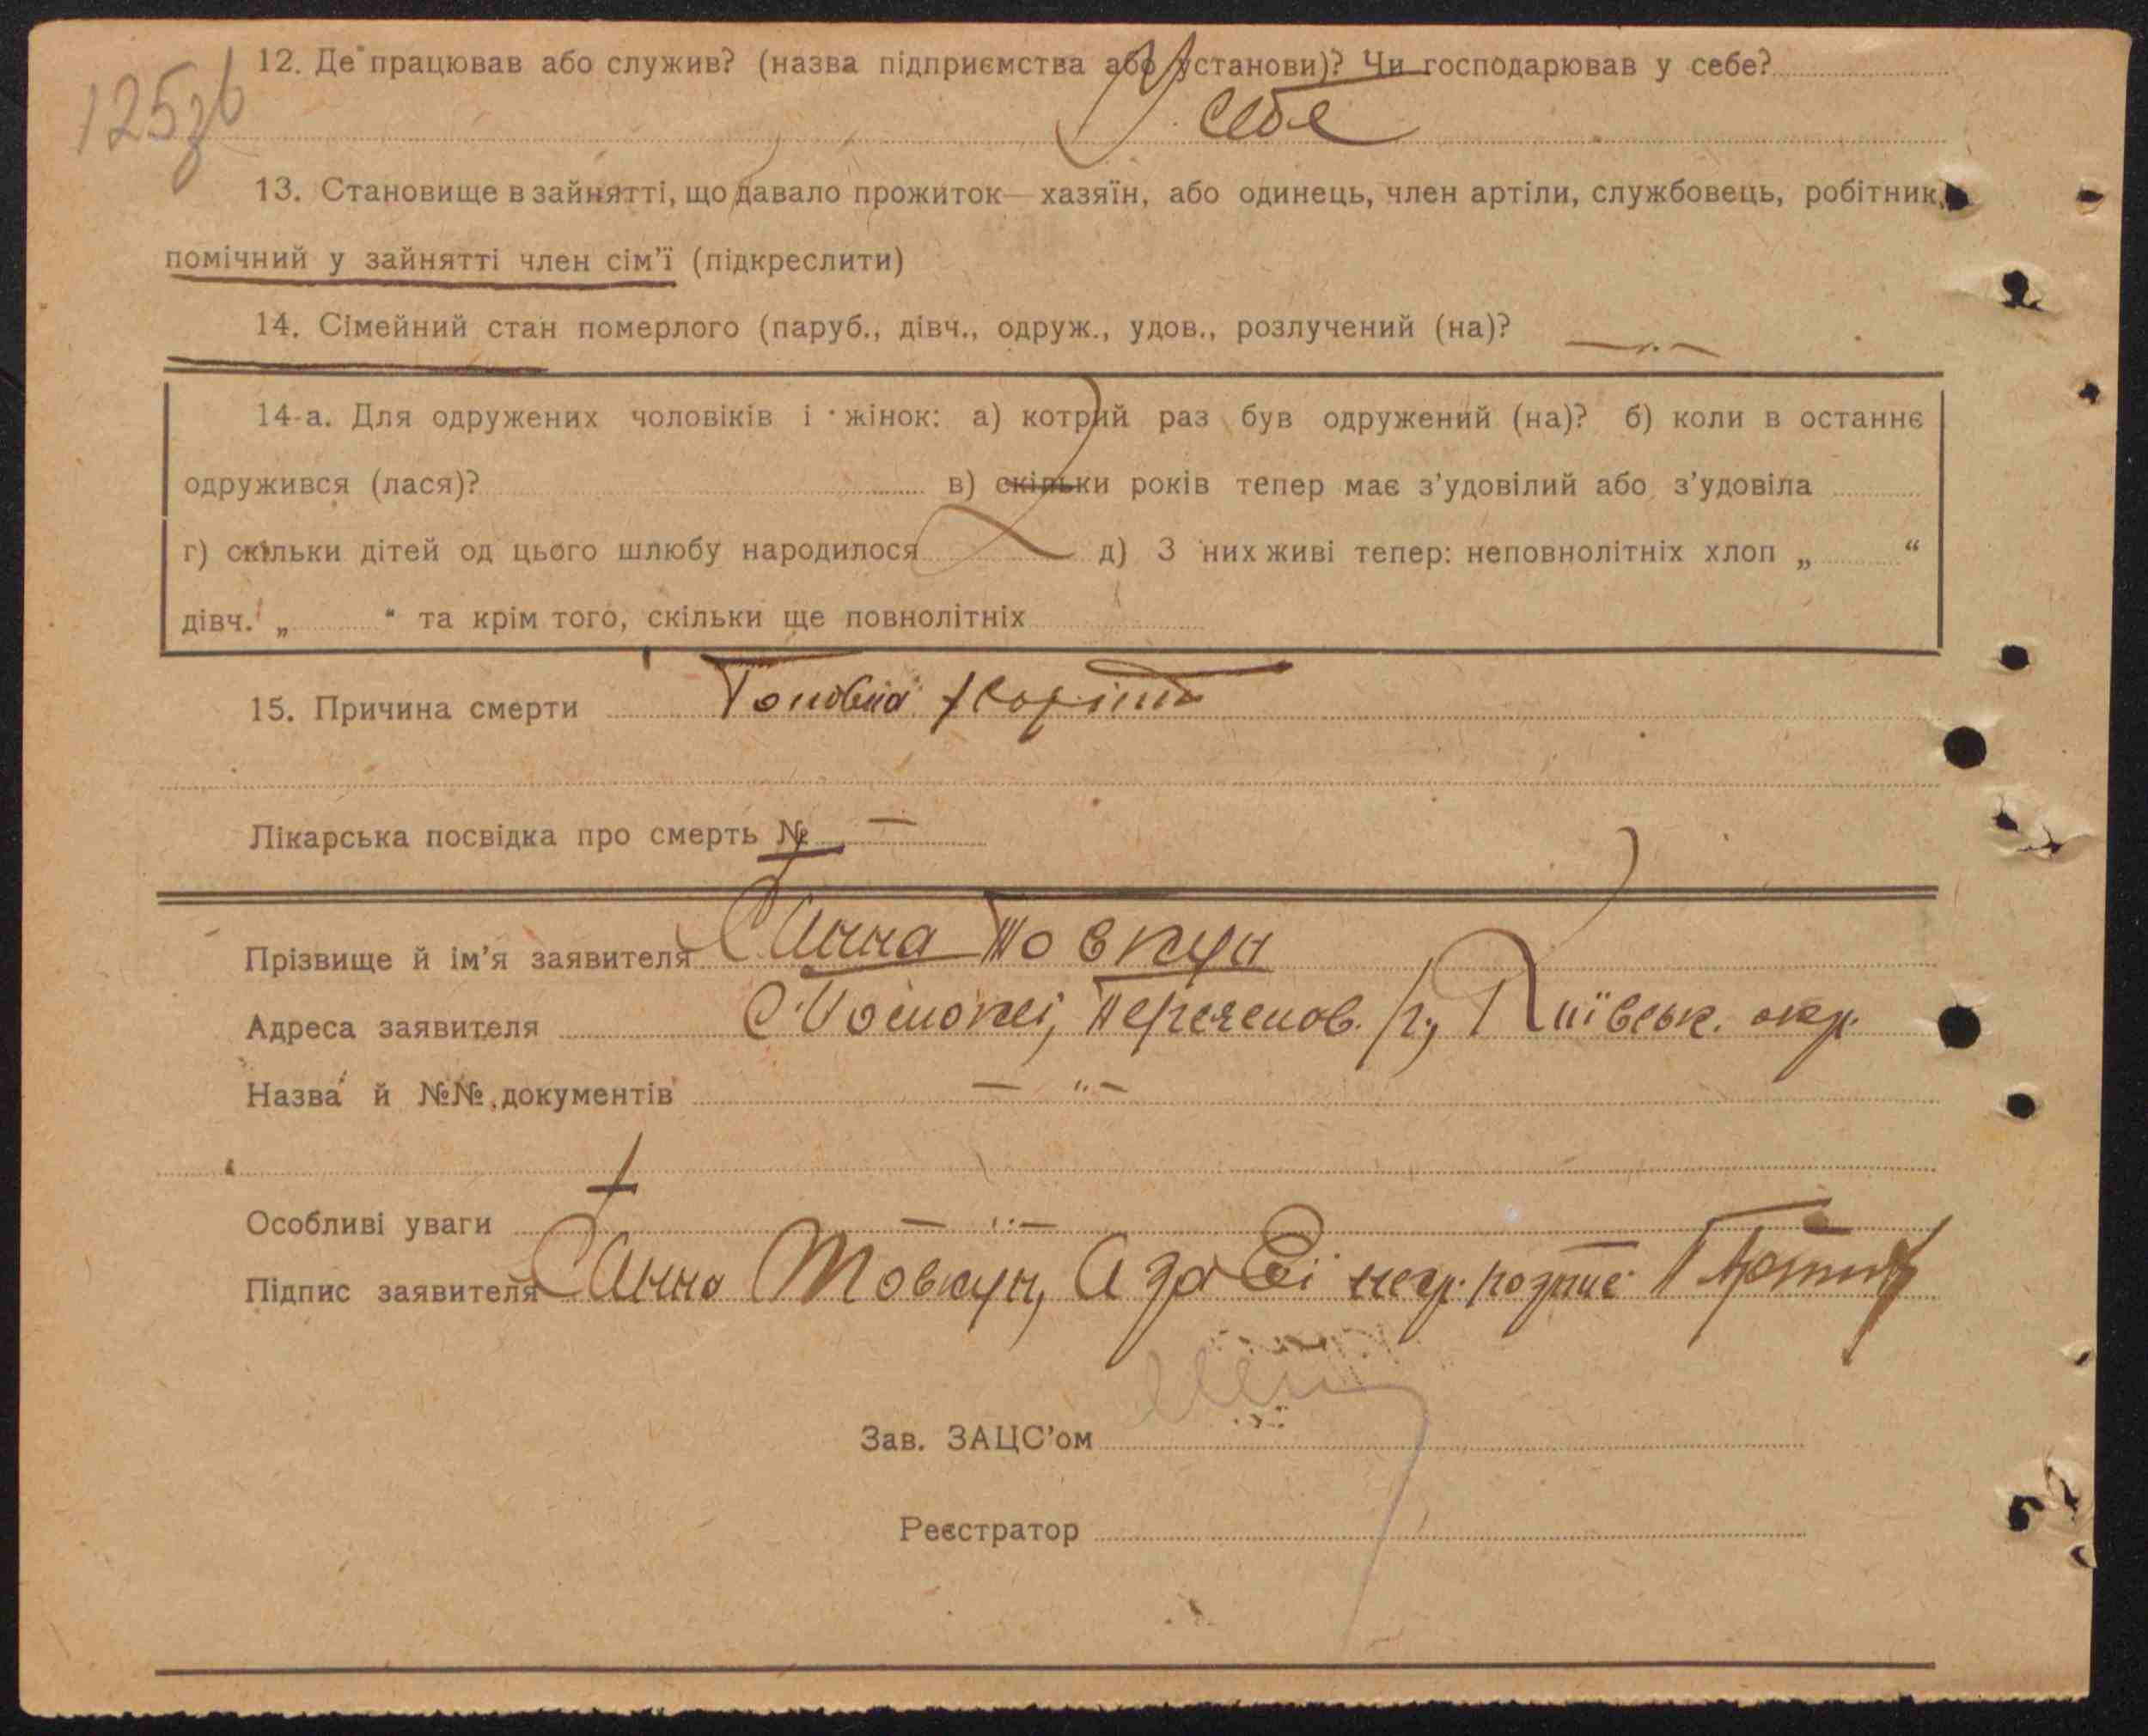 125зв
12. Де працював або служив? (назва підприємства або установи)? Чи господарював у себе?
У себе
13. Становище в зайнятті, що давало прожиток — хазяїн, або одинець, член артіли, службовець, робітник,
помічний у зайнятті член сім’ї (підкреслити)
14. Сімейний стан померлого (паруб., дівч., одруж., удов., розлучений (на)?
14-а. Для одружених чоловіків і жінок: а) котрий раз був одружений (на)? б) коли в останнє
одружився (лася)? в) скільки років тепер має з’удовілий або з’удовіла
г) скільки дітей од цього шлюбу народилося д) З них живі тепер: неповнолітніх хлоп „ “
дівч. „ “ та крім того, скільки ще повнолітніх
15. Причина смерти
Лікарська посвідка про смерть № —
Прізвище й ім’я заявителя Ганна Товкун
Адреса заявителя р., Київськ. окр.
Назва й №№ документів — „ —
Особливі уваги — „ —
Підпис заявителя Ганна Товкун, а за її негр. розпис.
Зав. ЗАЦС’ом
Реєстратор